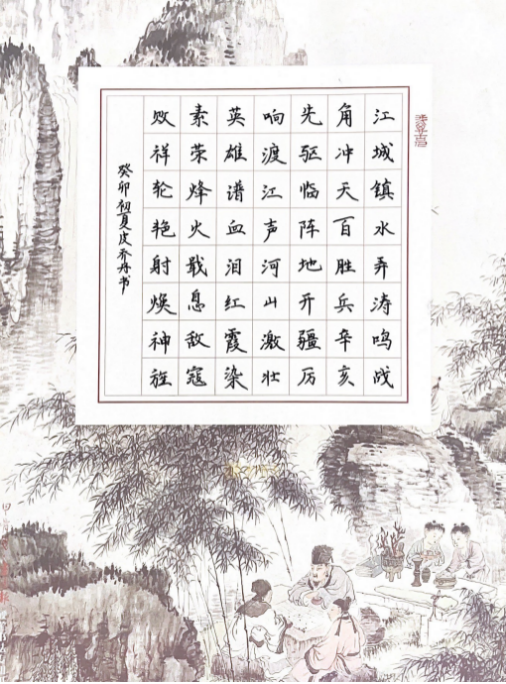 江城镇水弄涛鸣战
角冲天百胜兵辛亥
先驱临阵地开疆厉
响渡江声河山激壮
英雄谱血泪红霞染
素荣烽火戢息敌寇
败祥轮艳射焕神旌
癸卯初夏皮乔丹书